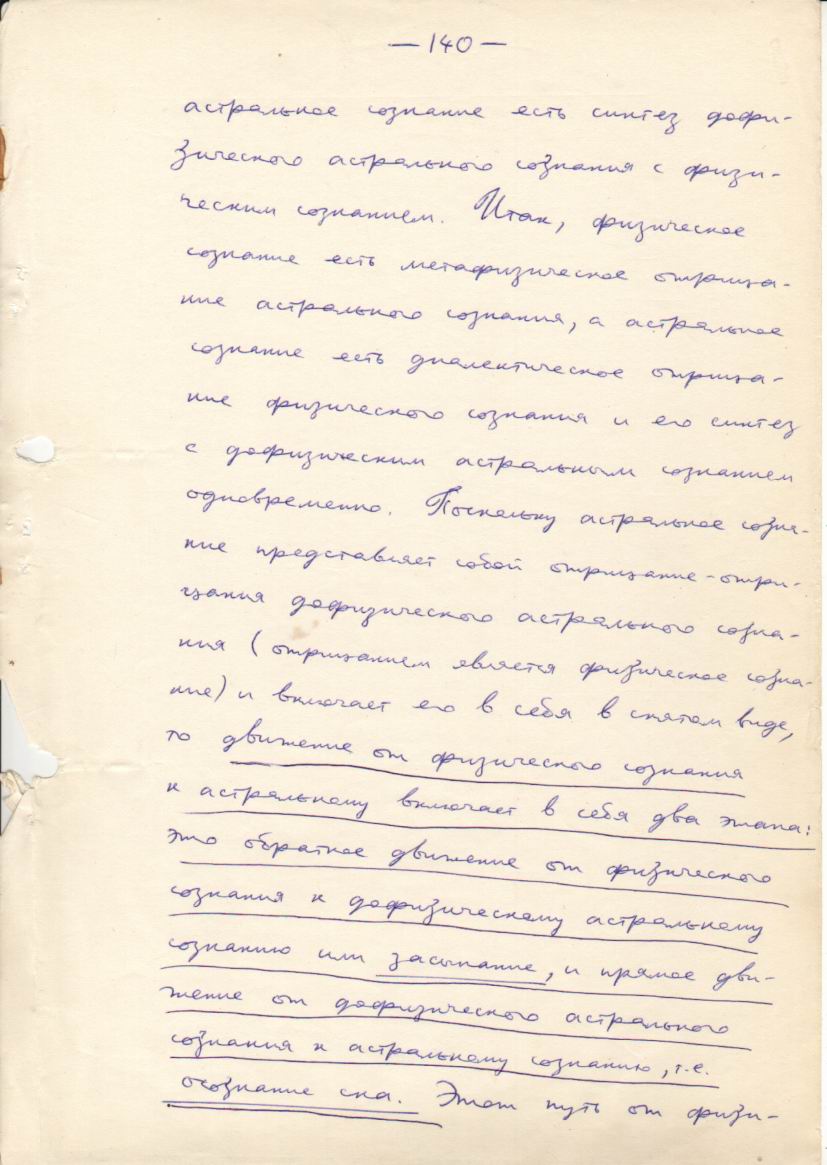 — 140 —
астральное сознание есть синтез дофи-
зического астрального сознания с физи-
ческим сознанием. Итак, физическое
сознание есть метафизическое отрица-
ние астрального сознания, а астральное
сознание есть диалектическое отрица-
ние физического сознания и его синтез
с дофизическим астральным сознанием
одновременно. Поскольку астральное созна-
ние представляет собой отрицание-отри-
цания дофизического астрального созна-
ния (отрицанием является физическое созна-
ние) и включает его в себя в снятом виде,
то движение от физического сознания
к астральному включает в себя два этапа:
это обратное движение от физического
сознания к дофизическому астральному
сознанию или засыпание, и прямое дви-
жение от дофизического астрального
сознания к астральному сознанию, т.е.
осознание сна. Этот путь от физи-